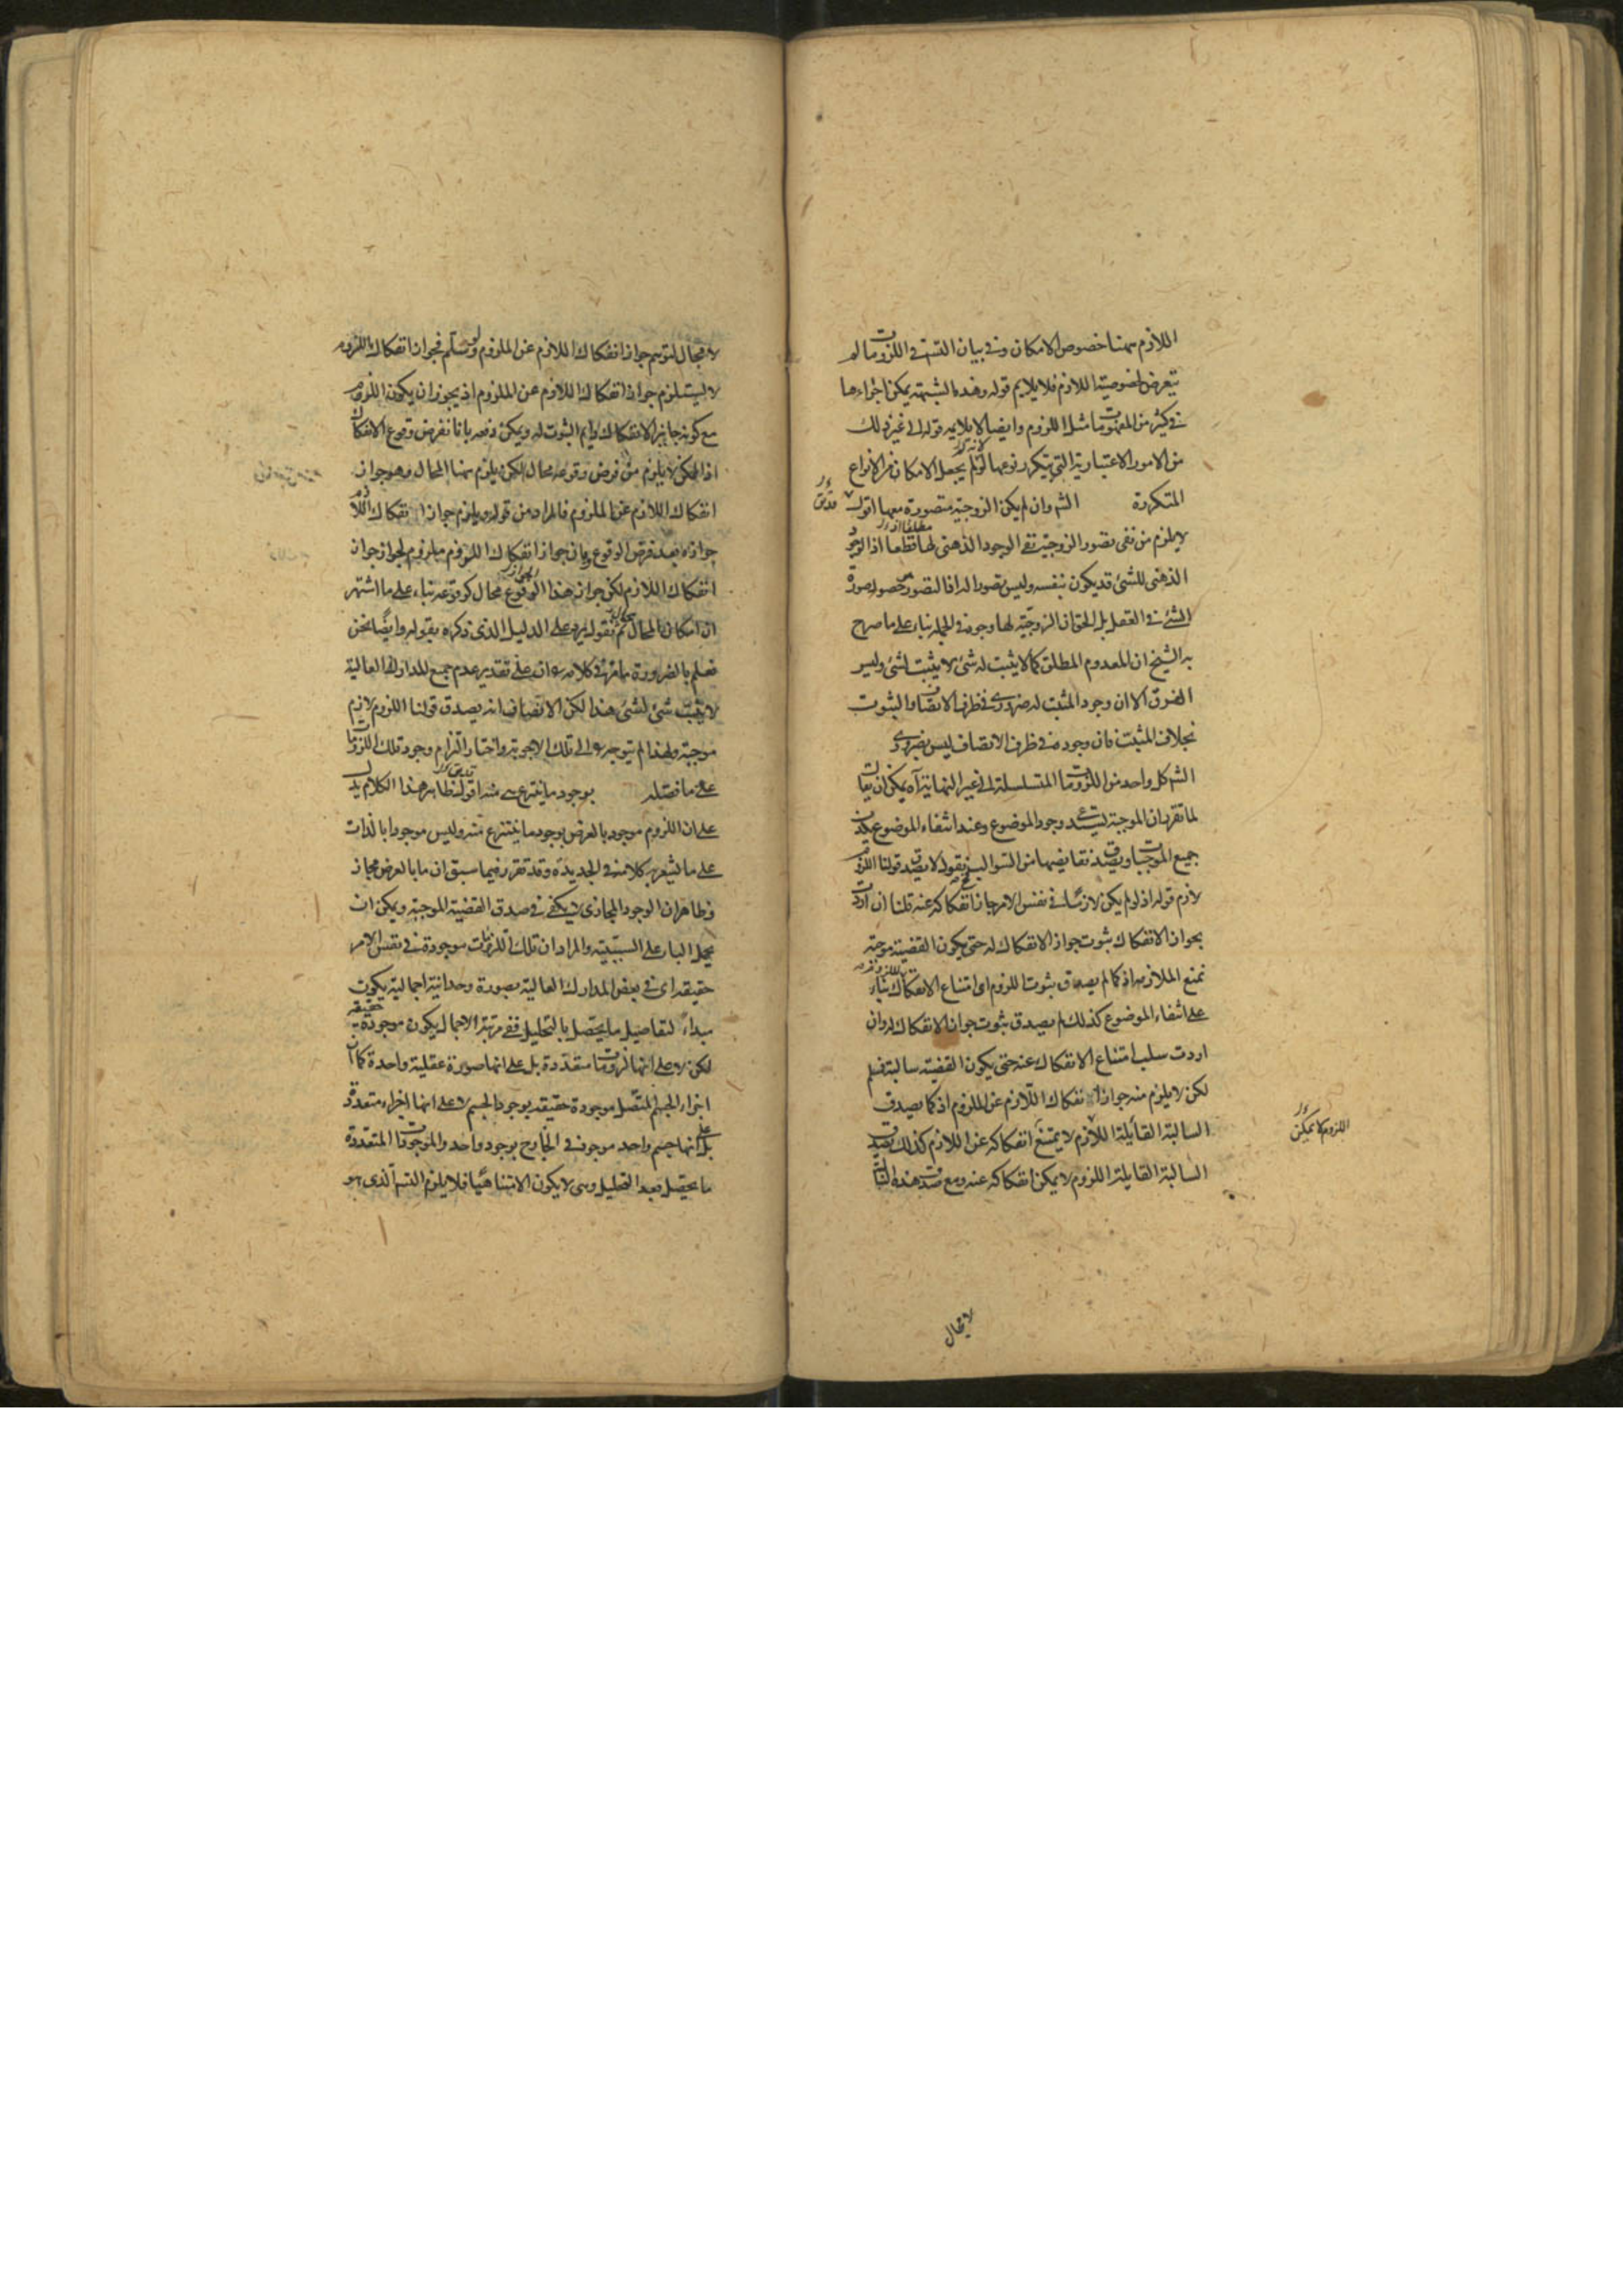 اللازم ههنا خصوص الامكان وفي بيان التسه في اللزومات لم
يتعرض لخصوصية اللازم فلا يلايم قوله وهذه الشبهة يمكن اجراءها
في كثير من المفهومات مثل اللزوم وايضا لا يلايمه قوله الى غير ذلك
من الامور الاعتبارية التي يتكرر نوعها لم يجعل الامكان من الانواع
المتكررة الشه وان لم يكن الزوجية متصورة معها اقول
لا يلزم من نفي تصور الزوجية نفي الوجود الذهني لها قطعا اذ الوجود
الذهني للشئ قد يكون بنفسه وليس تصورا له اذ التصور حصول صورة
الشئ في العقل بل الحق ان الزوجية لها وجود في الجملة بناء على ما صرح
به الشيخ ان المعدوم المطلق كما لا يثبت له شئ لا يثبت لشئ وليس
الفرق الا ان وجود المثبت له ضروري في ظرف الاتصاف والثبوت
بخلاف المثبت فان وجوده في ظرف الاتصاف ليس بضروري
الشه كل واحد من اللزومات المتسلسلة الى غير النهاية آه يمكن ان يقال
لما تقرر ان الموجبة يستدعي وجود الموضوع وعند انتفاء الموضوع يكذب
جميع الموجبات ويصدق نقايضها من السوالب فقوله لا يصدق قولنا اللزوم
لازم قوله اذ لو لم يكن لازما في نفس الامر جاز انفكاكه عنه قلنا ان اردت
بجواز الانفكاك ثبوت جواز الانفكاك له حتى يكون القضية موجبة
نمنع الملازمة اذ كما لم يصدق ثبوت اللزوم اي امتناع الانفكاك بناء
على انتفاء الموضوع كذلك لم يصدق ثبوت جواز الانفكاك له وان
اردت سلب امتناع الانفكاك عنه حتى يكون القضية سالبة فمسلم
لكن لا يلزم منه جواز انفكاك اللازم عن الملزوم اذ كما يصدق
السالبة القائلة اللازم لا يمتنع انفكاكه عن اللازم كذلك يصدق
السالبة القايلة اللزوم لا يمكن انفكاكه عنه ومع صدق هذه
اللزوم لا يمكن
لا مجال لتوهم جواز انفكاك اللازم عن الملزوم ولو سلم فجواز انفكاك اللزوم
لا يستلزم جواز انفكاك اللازم عن الملزوم اذ يجوز ان يكون اللزوم
مع كونه جايز الانفكاك دايم الثبوت له ويمكن دفعه بانا نفرض وقوع الانفكاك
اذ الممكن لا يلزم من فرض وقوعه محال لكن يلزم ههنا المحال وهو جواز
انفكاك اللازم عن الملزوم فالمراد من قوله ويلزم جواز انفكاك اللازم
جوازه بعد فرض الوقوع وان جواز انفكاك اللزوم ملزوم لجواز جواز
انفكاك اللازم لكن جواز هذا الوقوع محال كوقوعه بناء على ما اشتهر
ان امكان المحال محال ثم نقول يرد على الدليل الذي ذكره بقوله وايضا نحن
نعلم بالضرورة ما مر في كلامه ان على تقدير عدم جميع المدارك العالية
لا يثبت شئ لشئ هذا لكن الانصاف انه يصدق قولنا اللزوم لازم
موجبة ولهذا لم يتوجه الى تلك الاجوبة واختار التزام وجود تلك اللزومات
على ما فصله بوجود ما ينتزع منه اقول ظاهر هذا الكلام يدل
على ان اللزوم موجود بالعرض بوجود ما ينتزع منه وليس موجودا بالذات
على ما يشعر به كلامه في الجديدة وقد تقرر فيما سبق ان ما بالعرض مجاز
وظاهر ان الوجود المجازي لا يكفي في صدق القضية الموجبة ويمكن ان
يحمل الباء على السببية والمراد ان تلك اللزومات موجودة في نفس الامر
حقيقة اي في بعض المدارك العالية بصورة وحدانية اجمالية يكون
مبداء لتفاصيل ما يحصل بالتحليل ففي مرتبة الاجمال يكون موجودة حقيقة
لكن لا على انها لزومات متعددة بل على انها صورة عقلية واحدة كما ان
اجزاء الجسم المتصل موجودة حقيقة بوجود الجسم لا على انها اجزاء متعددة
بل على انها جسم واحد موجود في الخارج بوجود واحد والموجودات المتعددة
ما يحصل بعد التحليل وهي لا يكون الا متناهيا فلا يلزم التسه الذي هو